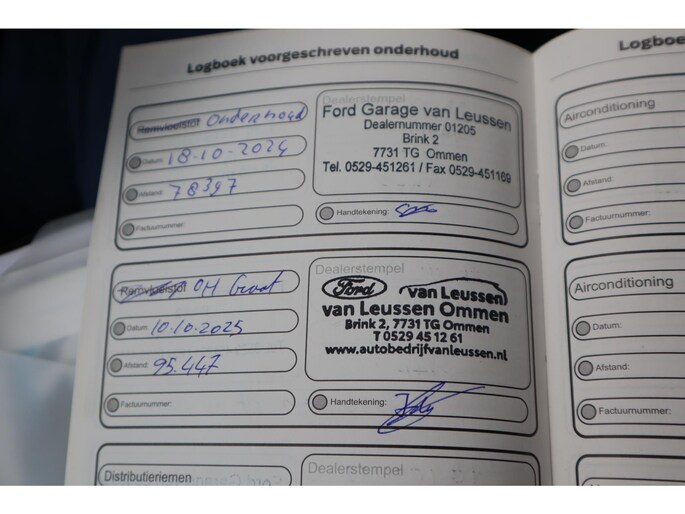 Logboek voorgeschreven onderhoud
Remvloeistof Onderhoud
Datum: 18-10-2024
Afstand: 78397
Factuurnummer:
Dealerstempel
Ford Garage van Leussen
Dealernummer 01205
Brink 2
7731 TG Ommen
Tel. 0529-451261 / Fax 0529-451169
Handtekening:
Remvloeistof OH Groot
Datum: 10.10.2025
Afstand: 95.447
Factuurnummer:
Dealerstempel
Ford van Leussen
van Leussen Ommen
Brink 2, 7731 TG Ommen
T 0529 45 12 61
www.autobedrijfvanleussen.nl
Handtekening:
Distributieriemen
Dealerstempel
Logboe
Airconditioning
Datum:
Afstand:
Factuurnummer:
Airconditioning
Datum:
Afstand:
Factuurnummer: